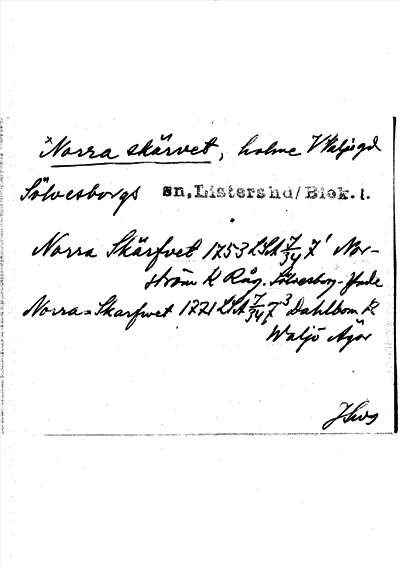 *Norra skärvet, holme V Valjegd
Sölvesborgs sn, Listers hd/Blek. l.
Norra Skärfvet 1753 LSA 7/34 7¹ Nor-
ström K Råg. Sölvesborg-Ysde
Norra-Skarfwet 1771 LSA 7/34, 7³ Dahlbom K
Waljö Ägor